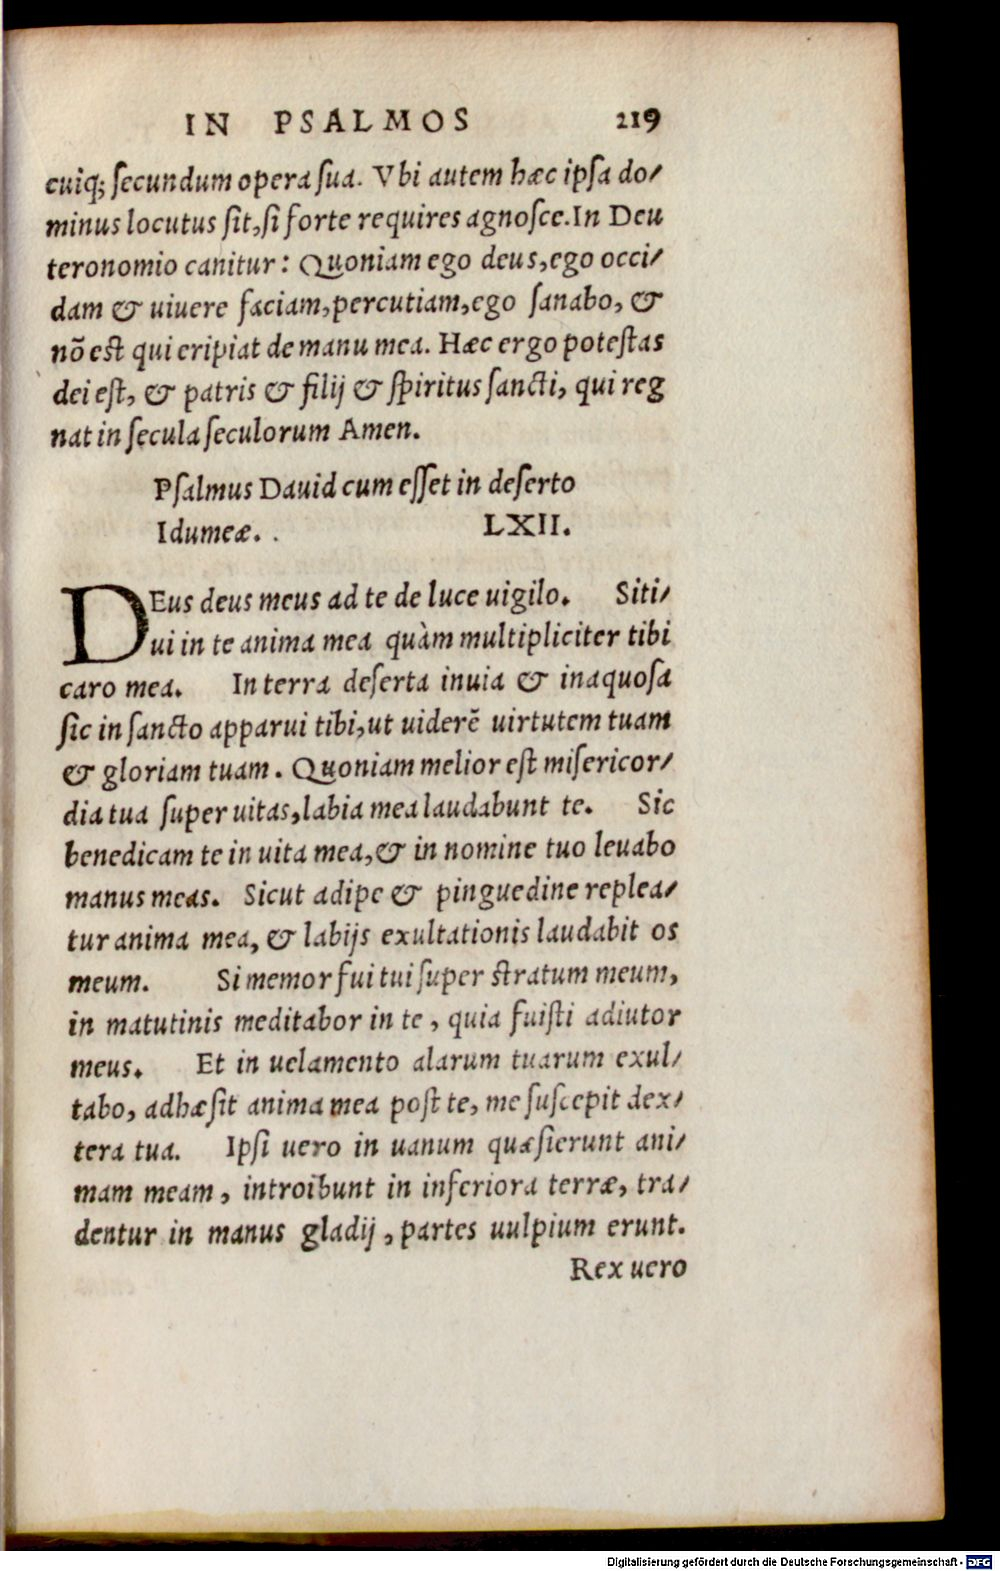 IN PSALMOS 219
cuiq; ſecundum opera ſua. Vbi autem hæc ipſa do/
minus locutus ſit, ſi forte requires agnoſce. In Deu
teronomio canitur: Quoniam ego deus, ego occi/
dam & uiuere faciam, percutiam, ego ſanabo, &
nō eſt qui eripiat de manu mea. Hæc ergo poteſtas
dei eſt, & patris & filij & ſpiritus ſancti, qui reg
nat in ſecula ſeculorum Amen.
Pſalmus Dauid cum eſſet in deſerto
Idumeæ. . LXII.
DEus deus meus ad te de luce uigilo. Siti/
ui in te anima mea quàm multipliciter tibi
caro mea. In terra deſerta inuia & inaquoſa
ſic in ſancto apparui tibi, ut uiderē uirtutem tuam
& gloriam tuam. Quoniam melior eſt miſericor/
dia tua ſuper uitas, labia mea laudabunt te. Sic
benedicam te in uita mea, & in nomine tuo leuabo
manus meas. Sicut adipe & pinguedine replea/
tur anima mea, & labijs exultationis laudabit os
meum. Si memor fui tui ſuper ſtratum meum,
in matutinis meditabor in te, quia fuiſti adiutor
meus. Et in uelamento alarum tuarum exul/
tabo, adhæſit anima mea poſt te, me ſuſcepit dex/
tera tua. Ipſi uero in uanum quæſierunt ani/
mam meam, introibunt in inferiora terræ, tra/
dentur in manus gladij, partes uulpium erunt.
Rex uero
Digitalisierung gefördert durch die Deutsche Forschungsgemeinschaft - DFG